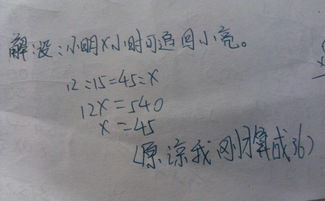 解:设:小明X小时可追回小亮。
12:15=45=X
12X=540
X=45
(原谅我刚才算成36)